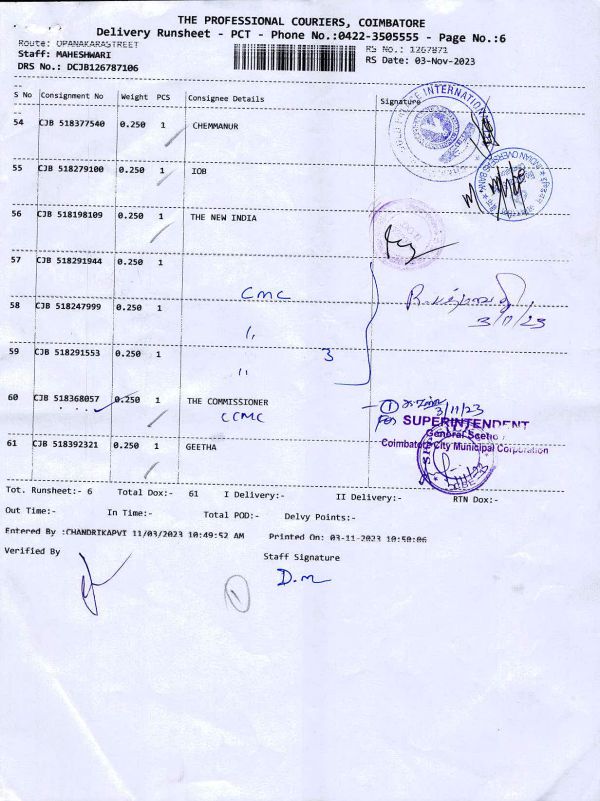 THE PROFESSIONAL COURIERS, COIMBATORE
Delivery Runsheet - PCT - Phone No.:0422-3505555 - Page No.:6
Route: OPANAKARASTREET RS No.: 1267871
Staff: MAHESHWARI RS Date: 03-Nov-2023
DRS No.: DCJB126787106
S No Consignment No Weight PCS Consignee Details Signature
54 CJB 518377540 0.250 1 CHEMMANUR
INTERNATIONAL
55 CJB 518279100 0.250 1 IOB
INDIAN OVERSEAS BANK
56 CJB 518198109 0.250 1 THE NEW INDIA
57 CJB 518291944 0.250 1
CMC
3/11/23
58 CJB 518247999 0.250 1
〃
59 CJB 518291553 0.250 1 3
〃
60 CJB 518368057 0.250 1 THE COMMISSIONER
CCMC
1 3/11/23
For SUPERINTENDENT
General Section
Coimbatore City Municipal Corporation
61 CJB 518392321 0.250 1 GEETHA
Tot. Runsheet:- 6 Total Dox:- 61 I Delivery:- II Delivery:- RTN Dox:-
Out Time:- In Time:- Total POD:- Delvy Points:-
Entered By :CHANDRIKAPVI 11/03/2023 10:49:52 AM Printed On: 03-11-2023 10:50:06
Verified By Staff Signature
D.m
1